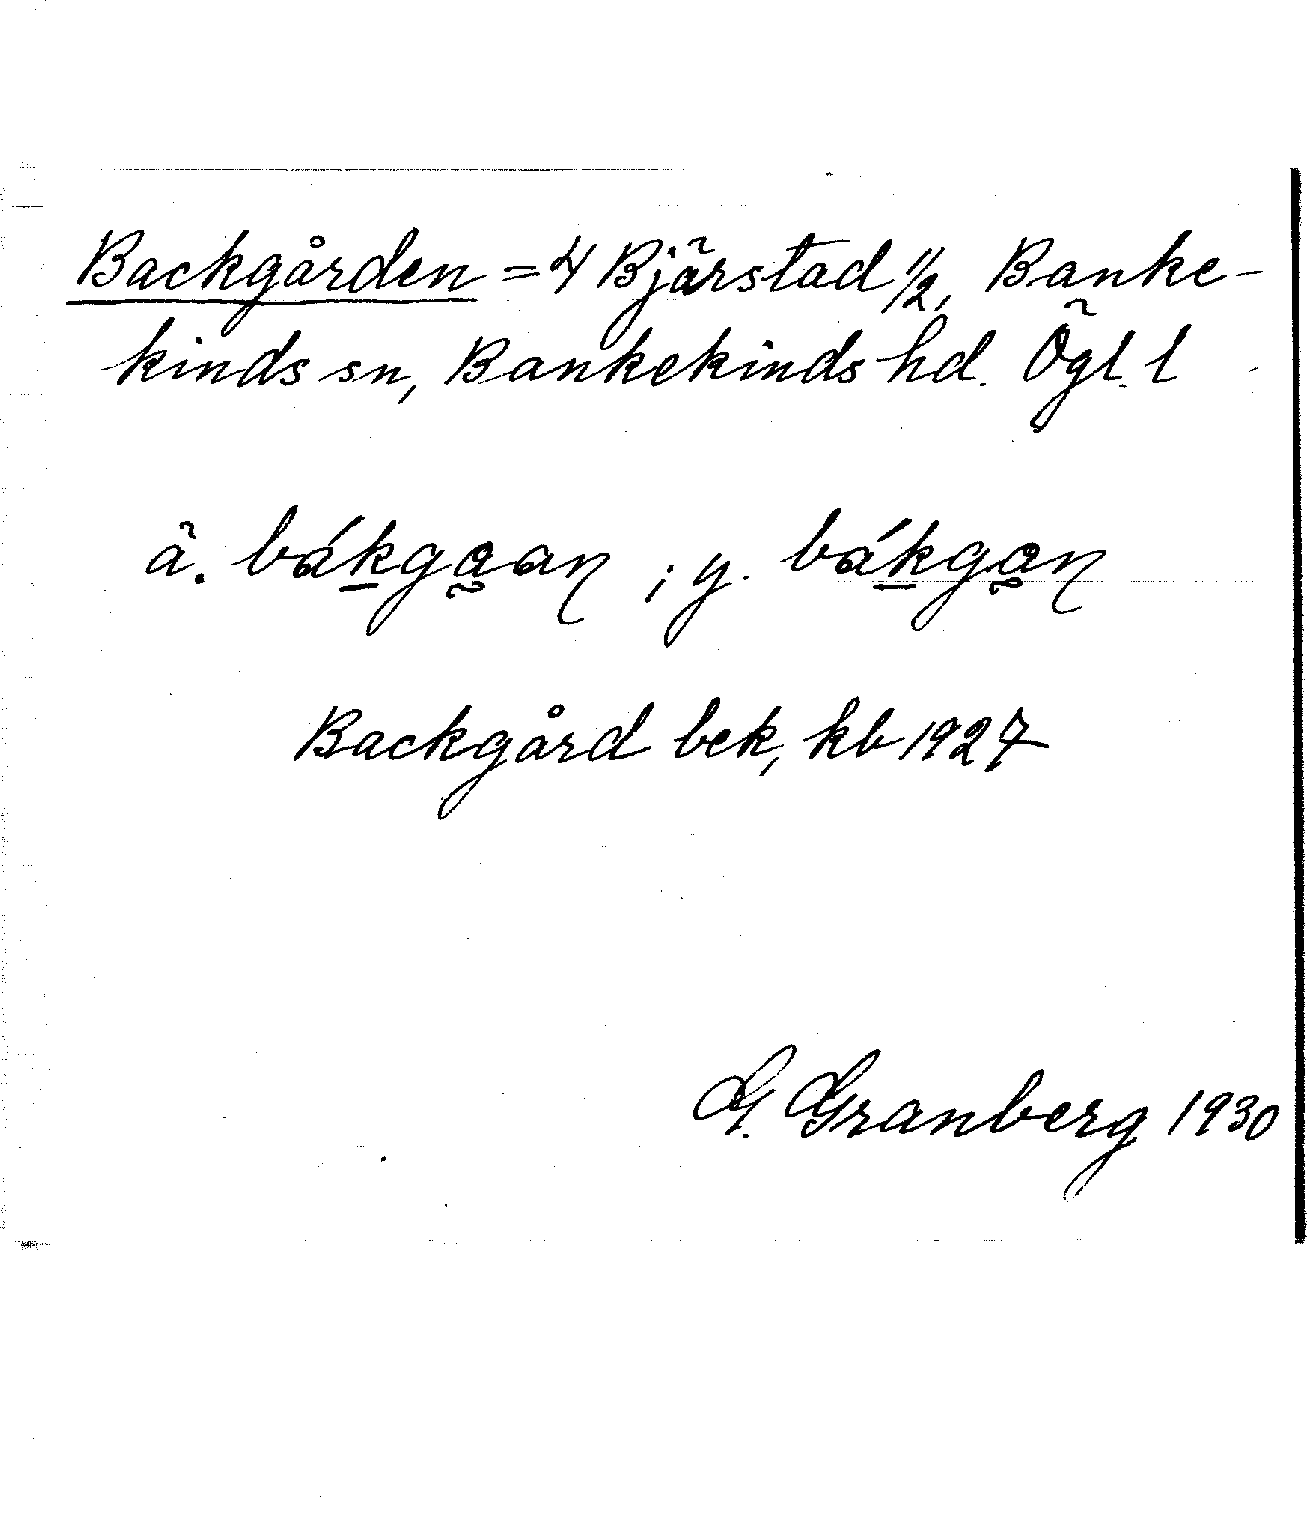 Backgården = 4 Bjärstad 1/2, Banke-
kinds sn, Bankekinds hd. Ögl. l
ä. bákgaan ; y. bákgan
Backgård bek, kb 1927
G. Granberg 1930